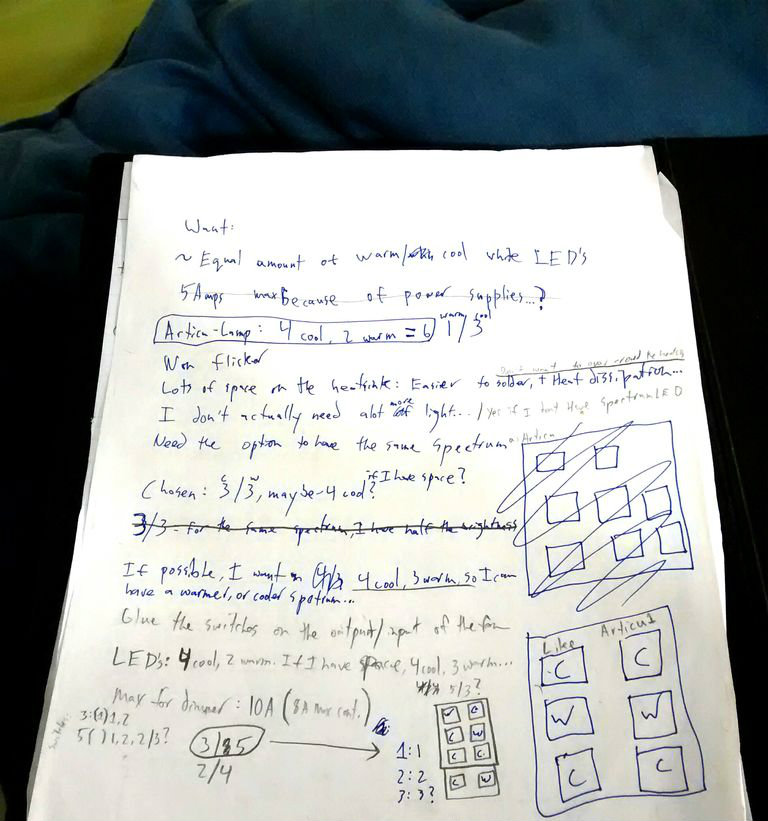 Want:
~ Equal amount of warm/ cool white LED's
5 Amps max because of power supplies...?
Artica-Lamp: 4 cool, 2 warm = 6 1/3
warm cool
Non flicker
Don't want to over-crowd the heatsink
Lots of space on the heatsink: Easier to solder, + Heat dissipation...
I don't actually need alot more of light... / Yes if I don't have spectrum LED
Need the option to have the same spectrum as Artica
Chosen: 3/3, maybe 4 cool? if I have space?
C W
3/3 - for the same spectrum, I have half the brightness
If possible, I want a 4/3 4 cool, 3 warm, so I can
have a warmer, or cooler spectrum...
Glue the switches on the output/input of the fan
LED's: 4 cool, 2 warm. If I have space, 4 cool, 3 warm...
4/4 5/3?
Max for dimmer: 10A (8A max cont.)
3:(1)1,2
5( )1,2,2/3?
3/5
2/4
1:1
2:2
3:3?
W C
C W
C C
C W
Like Artica 1
C C
W W
C C